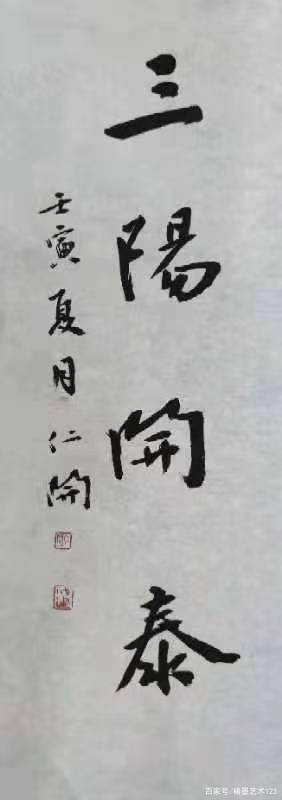 三陽開泰
壬寅夏月仁開
百家号/翰墨艺术123